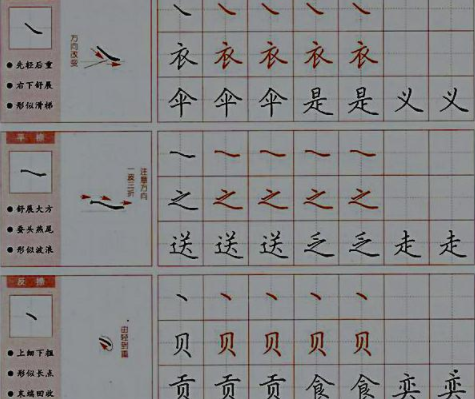 方向改变
先轻后重
右下舒展
形似滑梯
衣 衣 衣 衣 衣
伞 伞 伞 是 是 义 义
平捺
注意方向
一波三折
舒展大方
蚕头燕尾
形似波浪
之 之 之 之 之
送 送 送 乏 乏 走 走
反捺
由轻到重
上细下粗
形似长点
末端回收
贝 贝 贝 贝 贝
贡 贡 贡 食 食 奕 奕